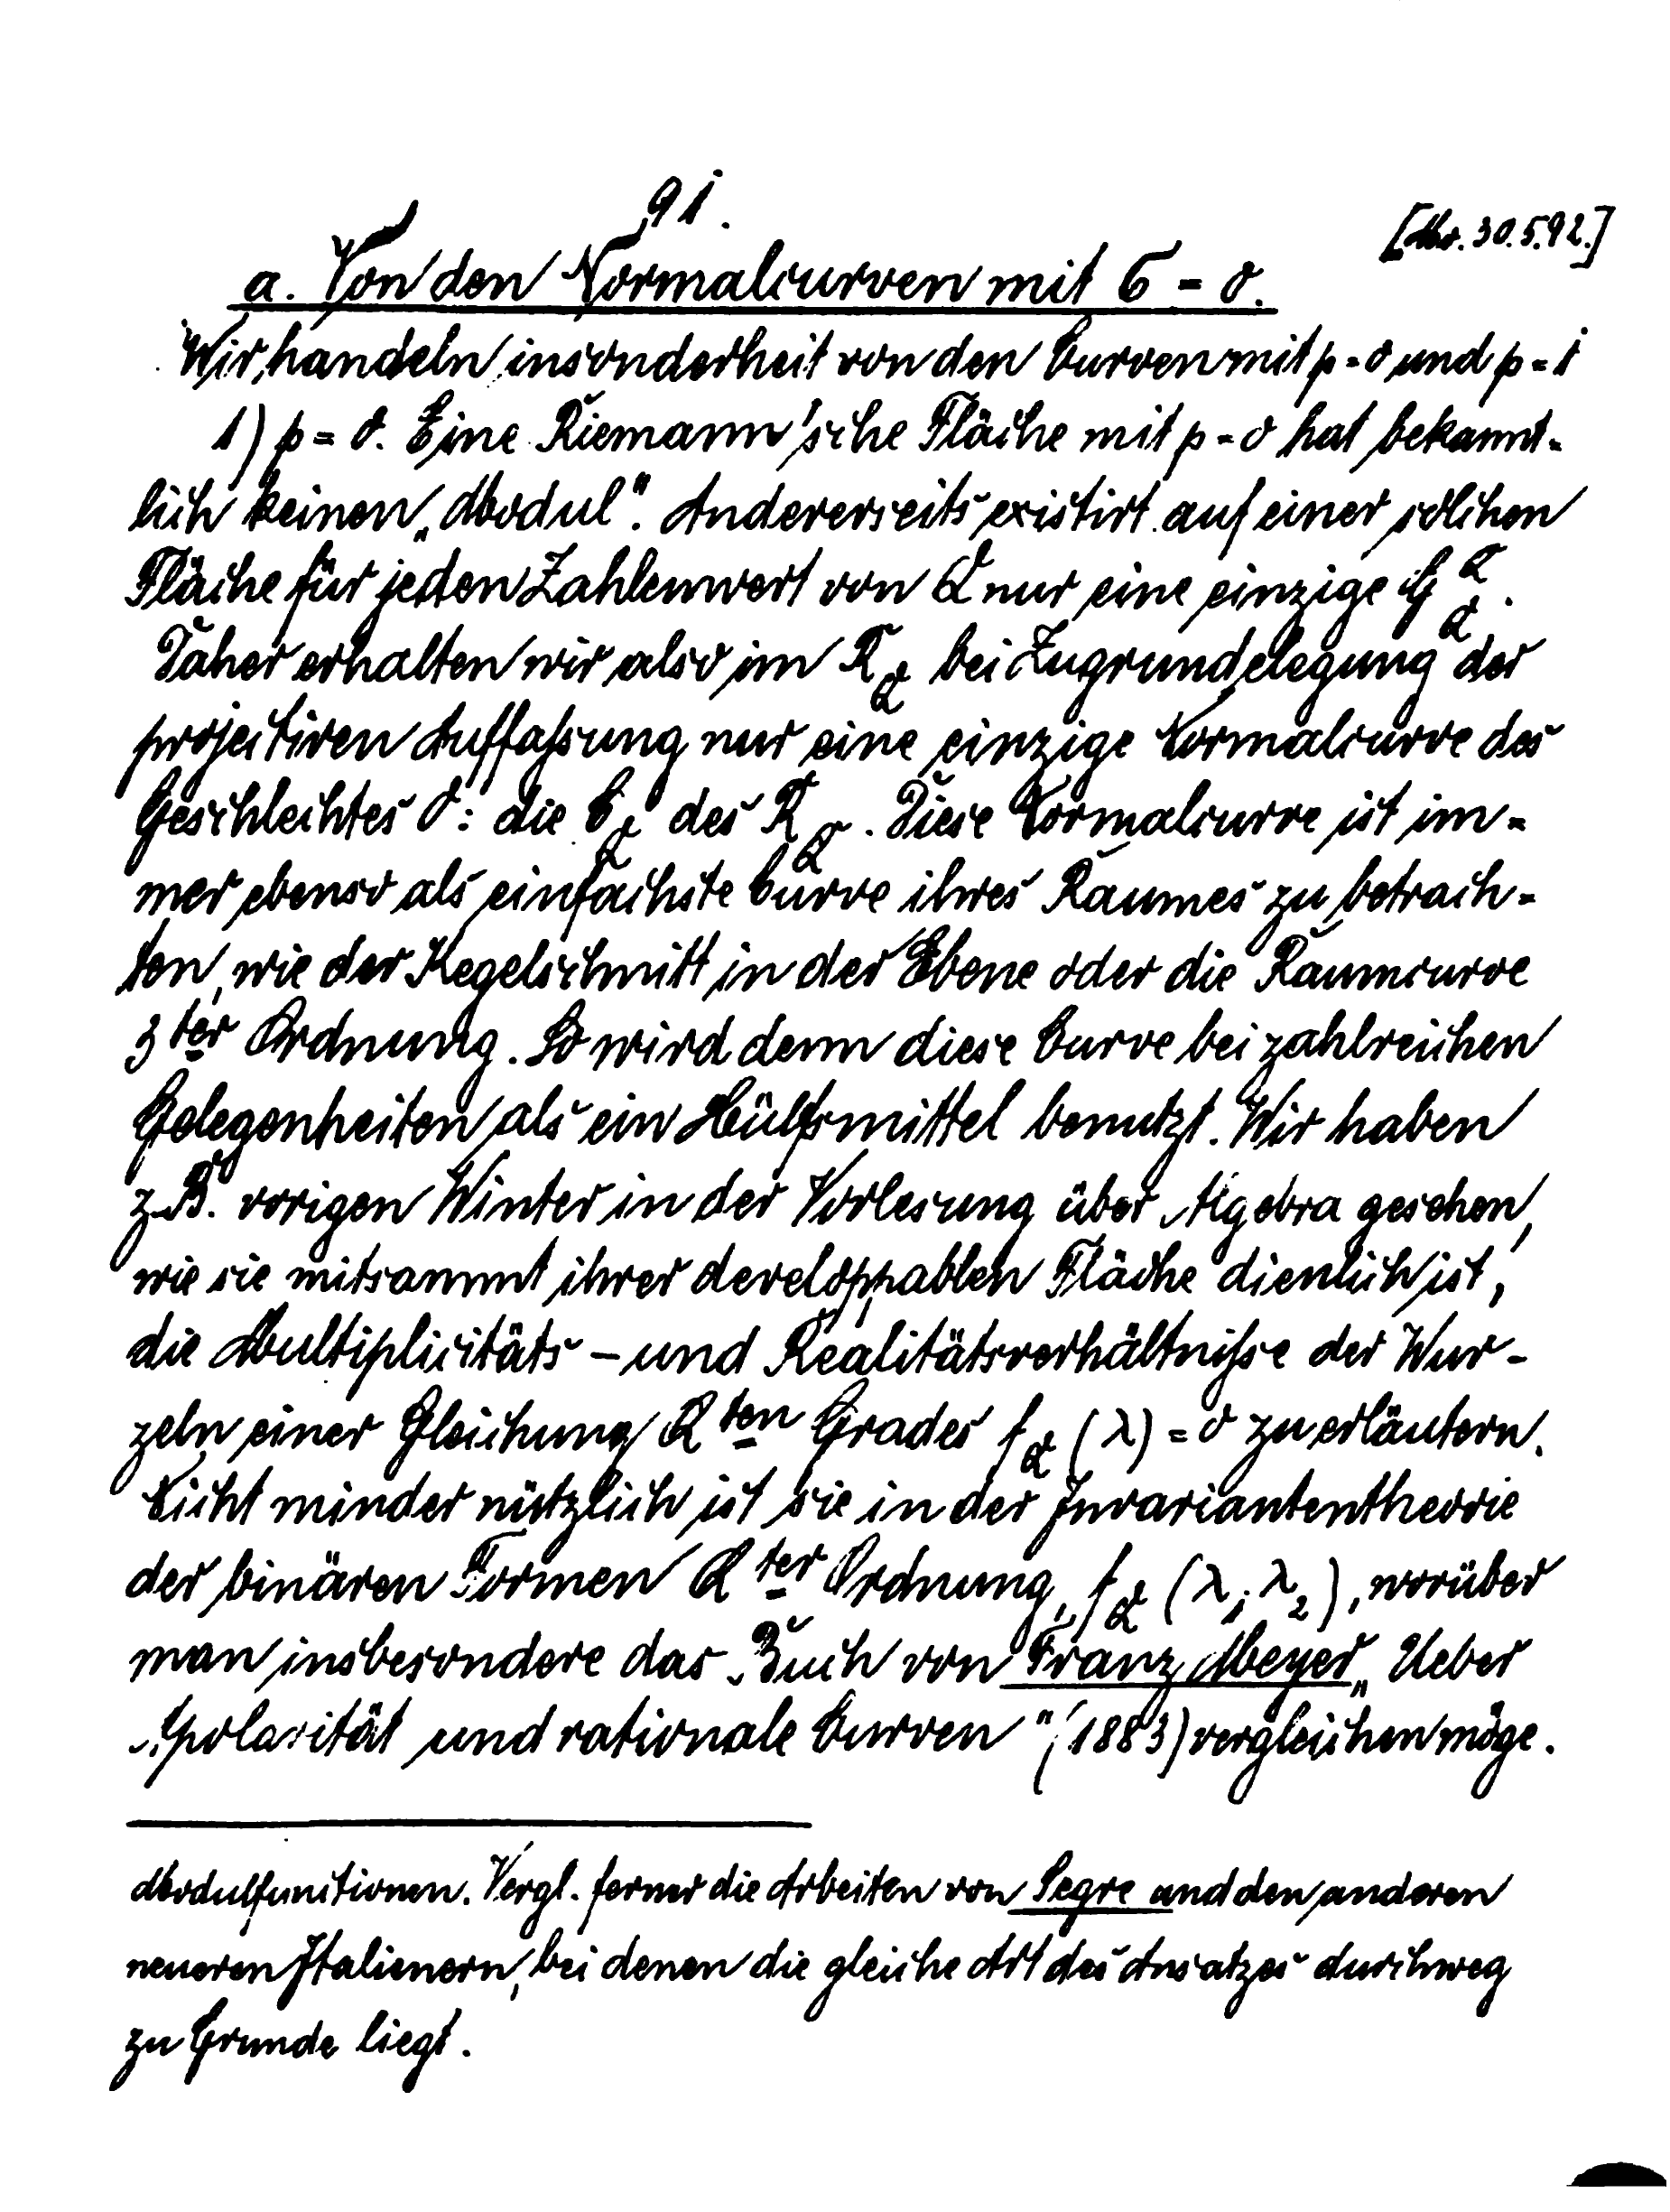 91.
[Mo. 30.5.92.]
a. Von den Normalcurven mit σ = 0.
Wir handeln insonderheit von den Curven mit p = 0 und p = 1
1) p = 0. Eine Riemann'sche Fläche mit p = 0 hat bekannt-
lich keinen „Modul“. Andererseits existirt auf einer solchen
Fläche für jeden Zahlenwert von α nur eine einzige G_α^α.
Daher erhalten wir also im R_α bei Zugrundelegung der
projectiven Auffaßung nur eine einzige Normalcurve des
Geschlechtes 0: die C_α des R_α. Diese Normalcurve ist im-
mer ebenso als einfachste Curve ihres Raumes zu betrach-
ten, wie der Kegelschnitt in der Ebene oder die Raumcurve
3ter Ordnung. So wird denn diese Curve bei zahlreichen
Gelegenheiten als ein Hülfsmittel benutzt. Wir haben
z.B. vorigen Winter in der Vorlesung über Algebra gesehen,
wie sie mitsammt ihrer developpablen Fläche dienlich ist,
die Multiplicitäts- und Realitätsverhältniße der Wur-
zeln einer Gleichung αten Grades f_α(λ) = 0 zu erläutern.
Nicht minder nützlich ist sie in der Invariantentheorie
der binären Formen αter Ordnung, f_α(λ_1 λ_2), worüber
man insbesondere das Buch von Franz Meyer „Ueber
Apolarität und rationale Curven“ (1883) vergleichen möge.
Modulfunctionen. Vergl. ferner die Arbeiten von Segre und den anderen
neueren Italienern, bei denen die gleiche Art des Ansatzes durchweg
zu Grunde liegt.